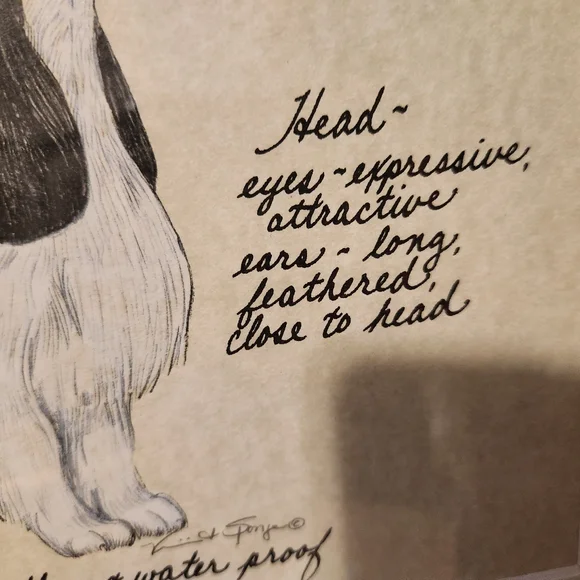 Head~
eyes ~ expressive,
attractive
ears ~ long,
feathered,
close to head
©
water proof